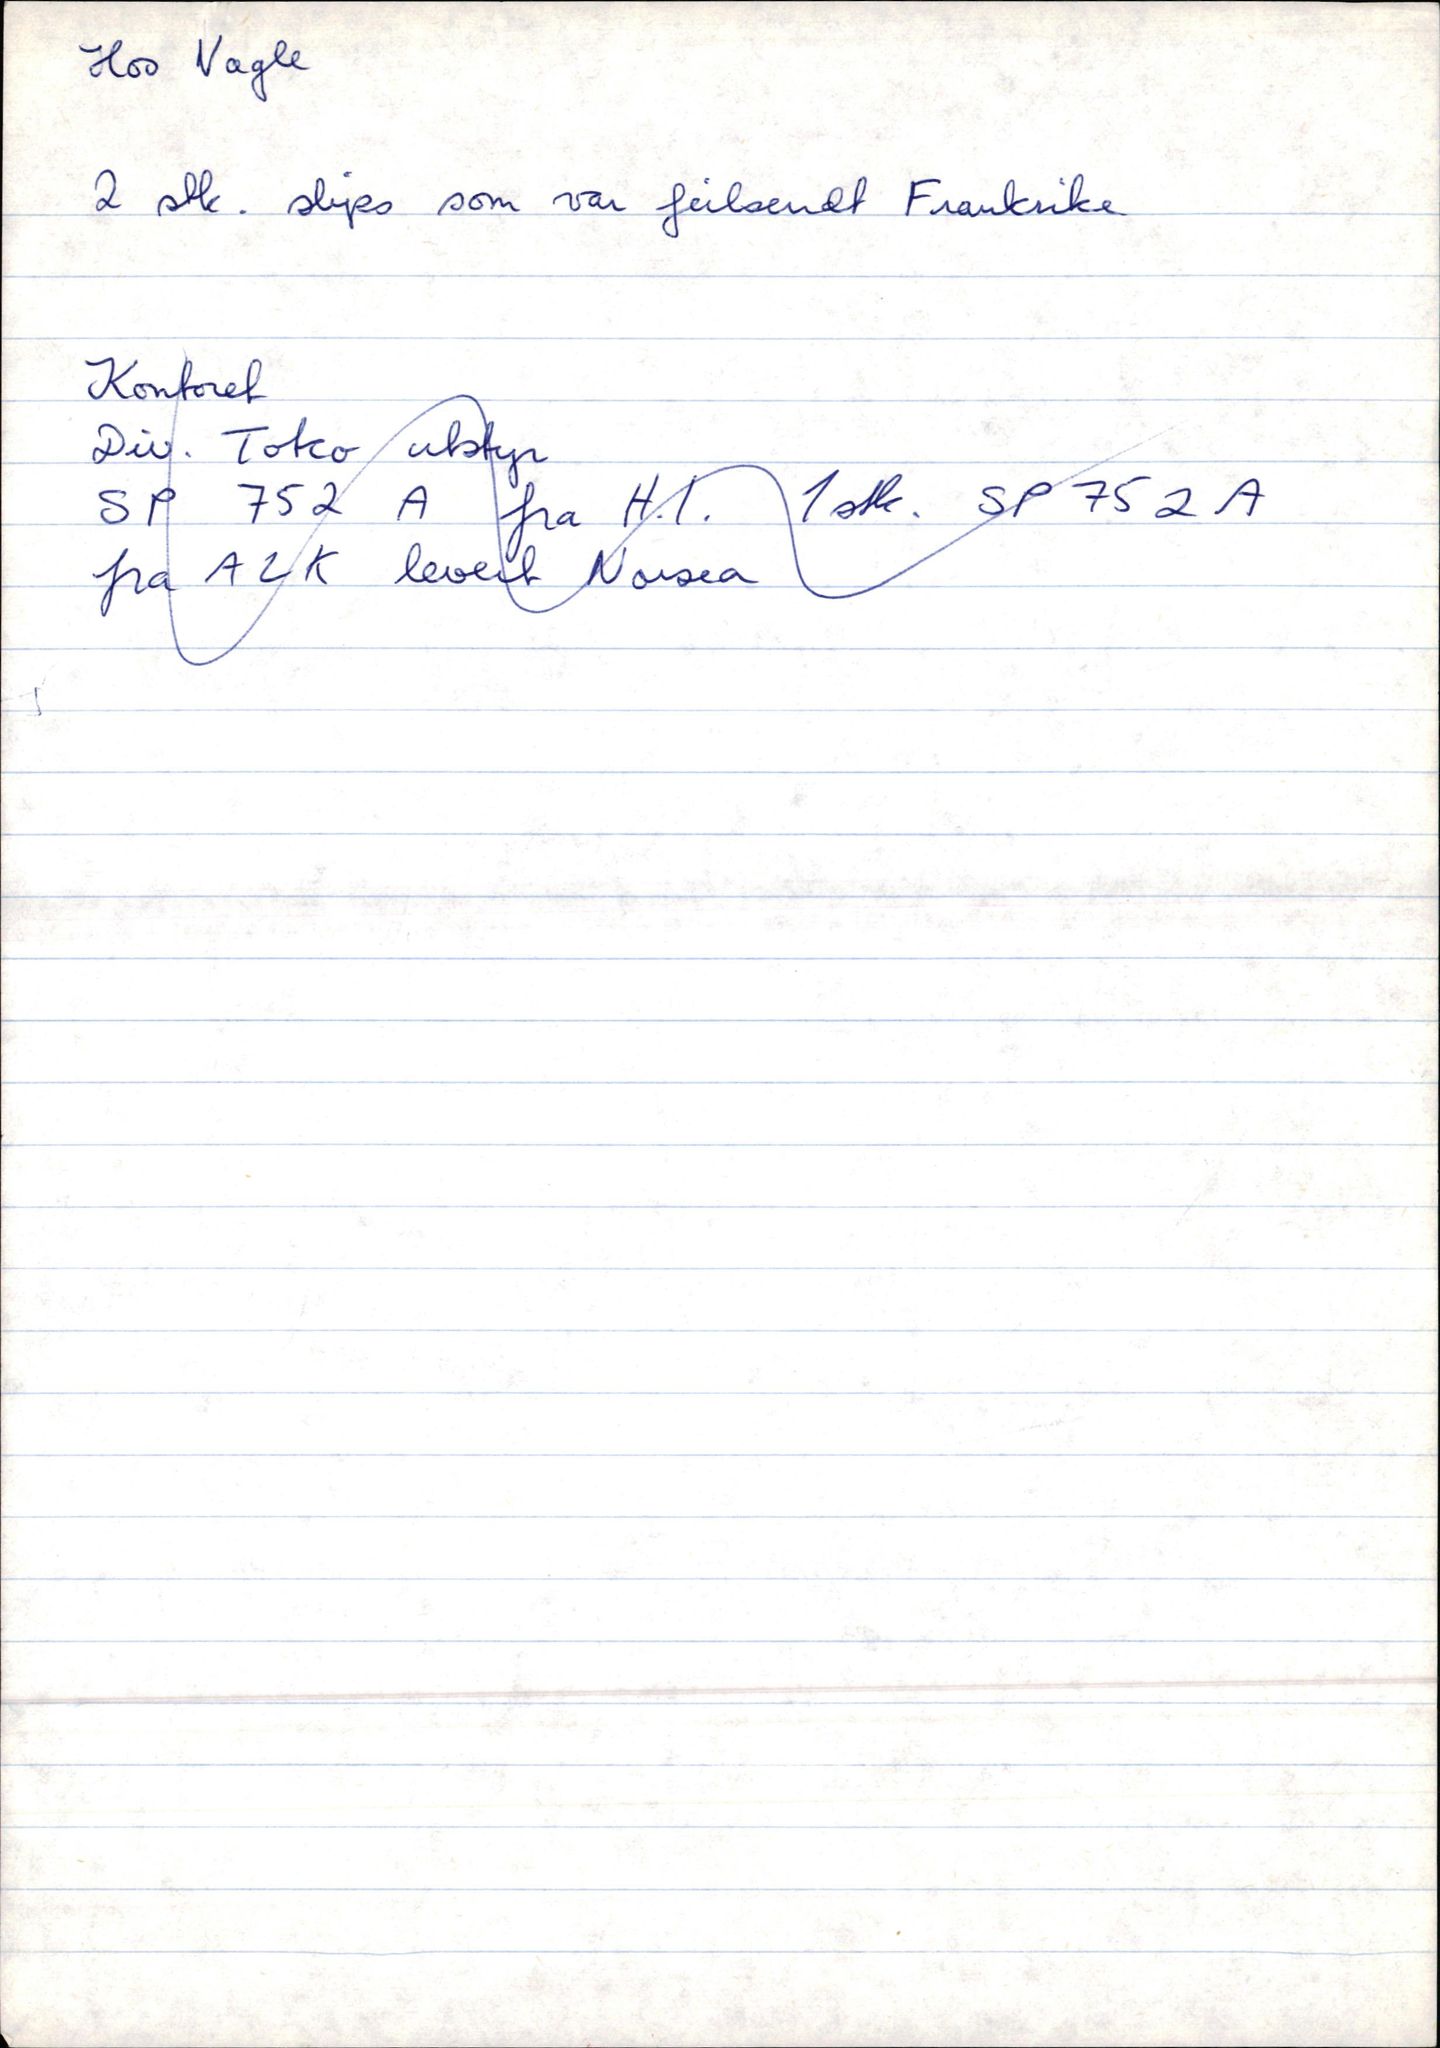 Hos Nagle
2 stk. slips som var feilsendt Frankrike
Kontoret
Div. Toko utstyr
SP 752 A fra H.I. 1 stk. SP 752 A
fra ALK levert Norsea